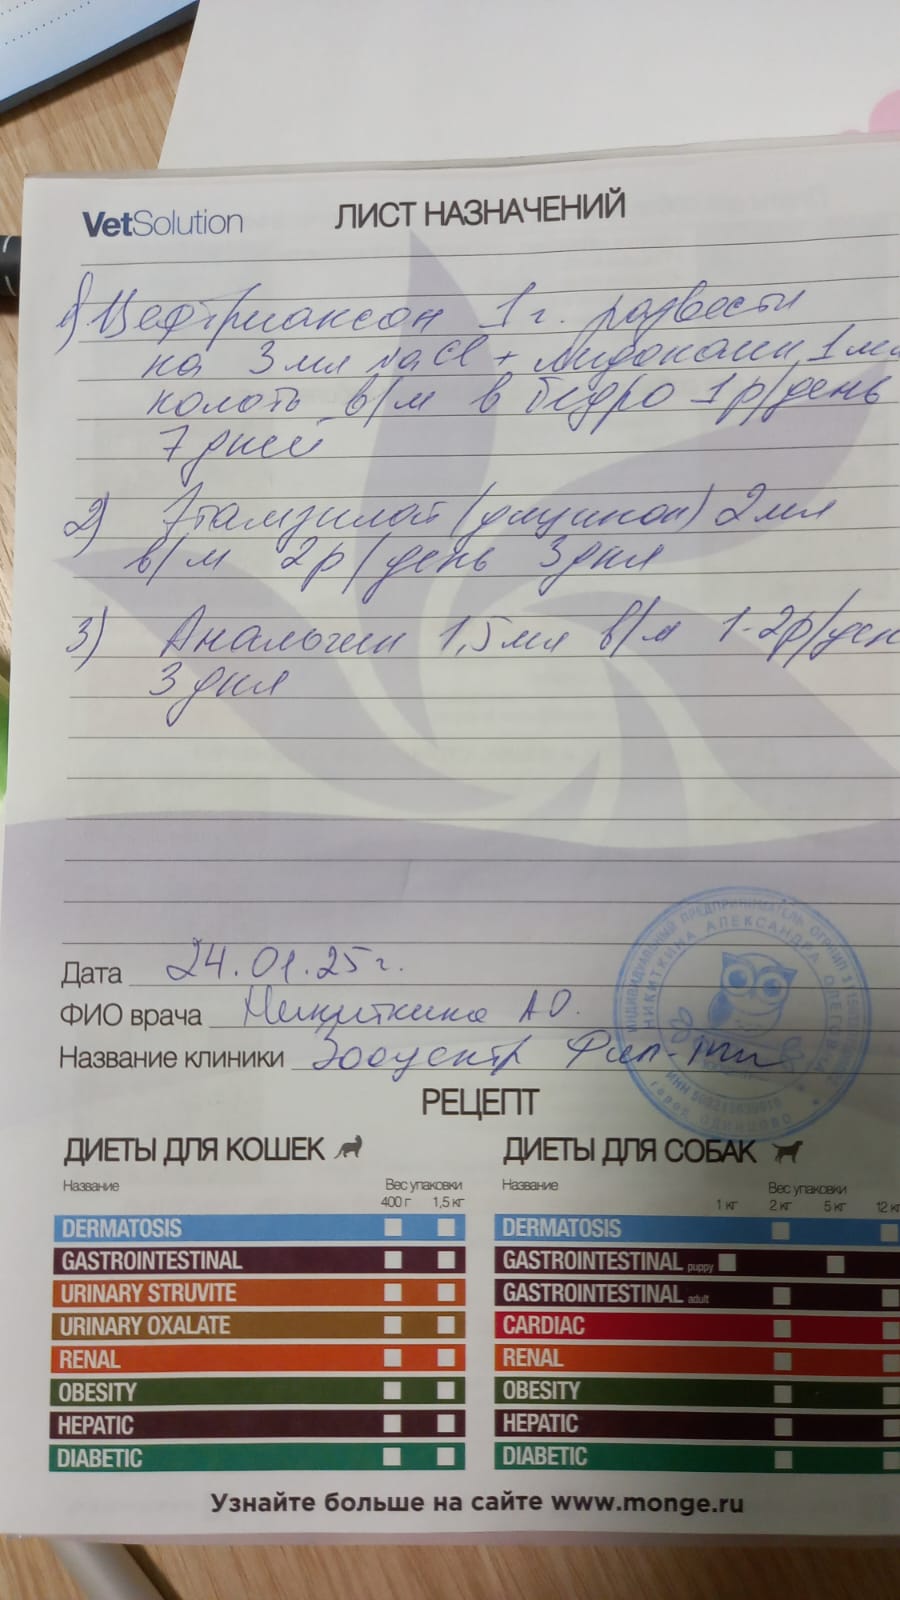 VetSolution
ЛИСТ НАЗНАЧЕНИЙ
1) Цефтриаксон 1 г. развести
на 3 мл NaCl + лидокаин 1 мл
колоть в/м в бедро 1р/день
7 дней
2) Этамзилат (дицинон) 2 мл
в/м 2р/день 3 дня
3) Анальгин 1,5 мл в/м 1-2р/ден
3 дня
Дата 24.01.25 г.
ФИО врача Никиткина АО.
Название клиники Зооцентр Фил-
ИНДИВИДУАЛЬНЫЙ ПРЕДПРИНИМАТЕЛЬ ОГРНИП
НИКИТКИНА АЛЕКСАНДРА ОЛЕГОВНА
ИНН
город ОДИНЦОВО
РЕЦЕПТ
ДИЕТЫ ДЛЯ КОШЕК
Название Вес упаковки
400 г 1,5 кг
DERMATOSIS
GASTROINTESTINAL
URINARY STRUVITE
URINARY OXALATE
RENAL
OBESITY
HEPATIC
DIABETIC
ДИЕТЫ ДЛЯ СОБАК
Название Вес упаковки
1 кг 2 кг 5 кг 12 кг
DERMATOSIS
GASTROINTESTINAL puppy
GASTROINTESTINAL adult
CARDIAC
RENAL
OBESITY
HEPATIC
DIABETIC
Узнайте больше на сайте www.monge.ru